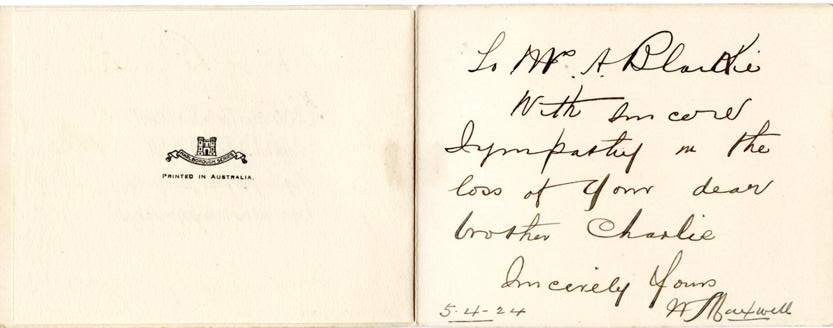 MARLBOROUGH SERIES
PRINTED IN AUSTRALIA.
To Mr. A. Blackie
With sincere
Sympathy in the
loss of your dear
brother Charlie
Sincerely Yours
5-4-24 W Maxwell